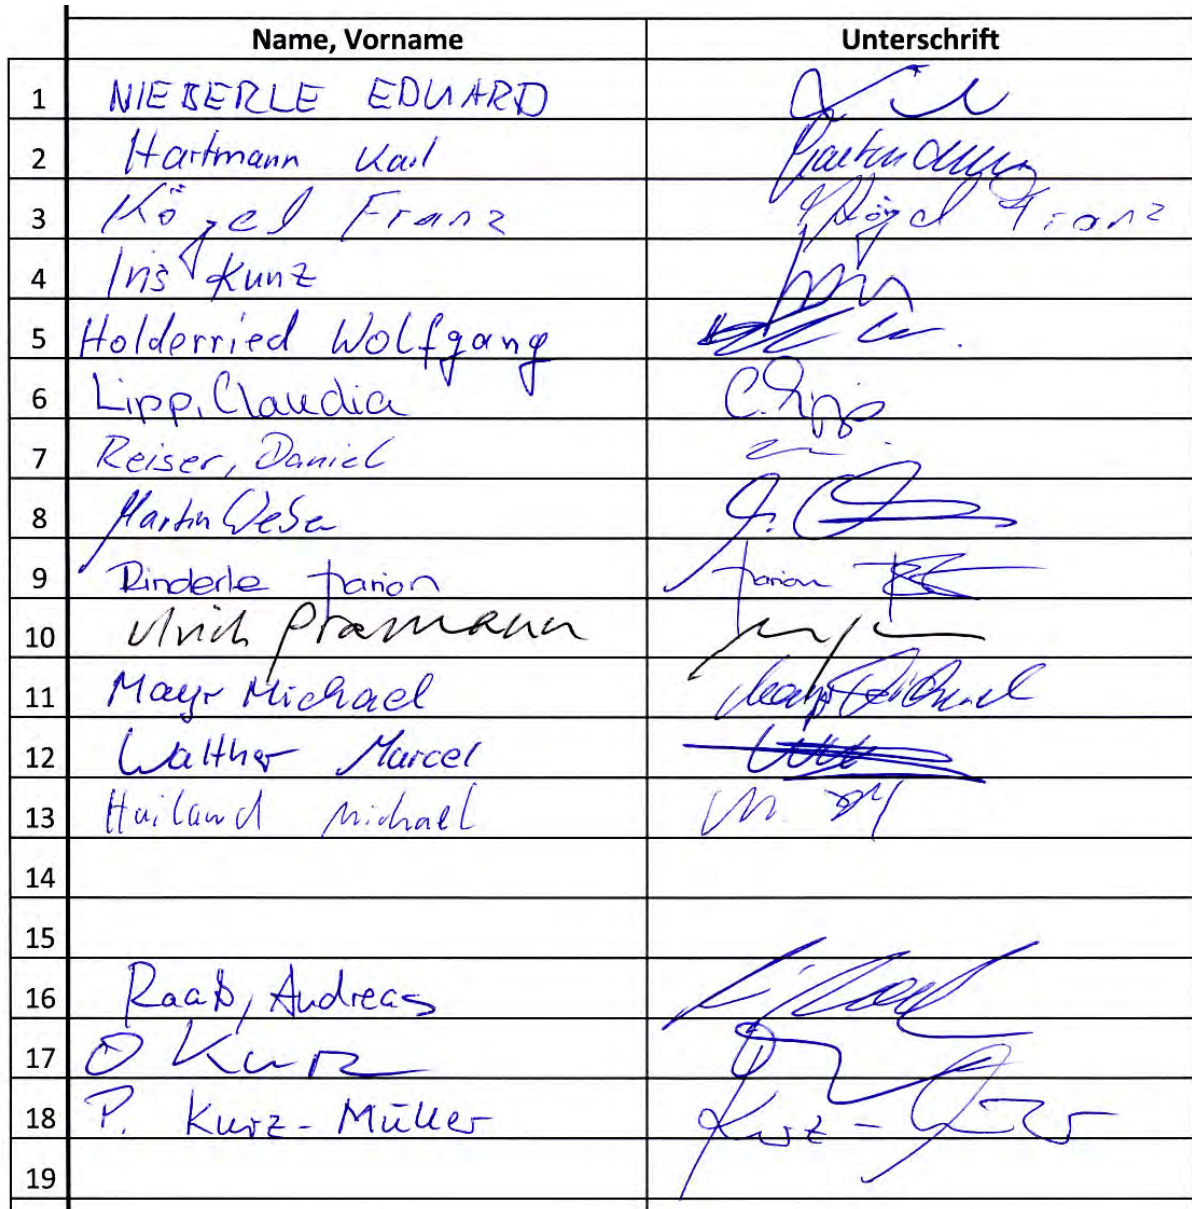 Name, Vorname Unterschrift
1 NIEBERLE EDUARD
2 Hartmann Karl Hartmann
3 Kögel Franz Kögel Franz
4 Iris Kunz
5 Holderried Wolfgang
6 Lipp, Claudia C. Lipp
7 Reiser, Daniel
8 Martin Weber
9 Rinderle Marion Marion
10 Ulrich Pramann
11 Mayr Michael Mayr Michael
12 Walther Marcel
13 Hailand Michael M.
14
15
16 Raab, Andreas
17 O Kurz
18 P. Kurz-Müller Kurz-
19